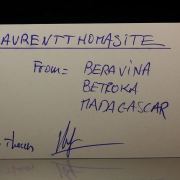 AURENTTHOMASITE
From= BERAVINA
BETROKA
MADAGASCAR